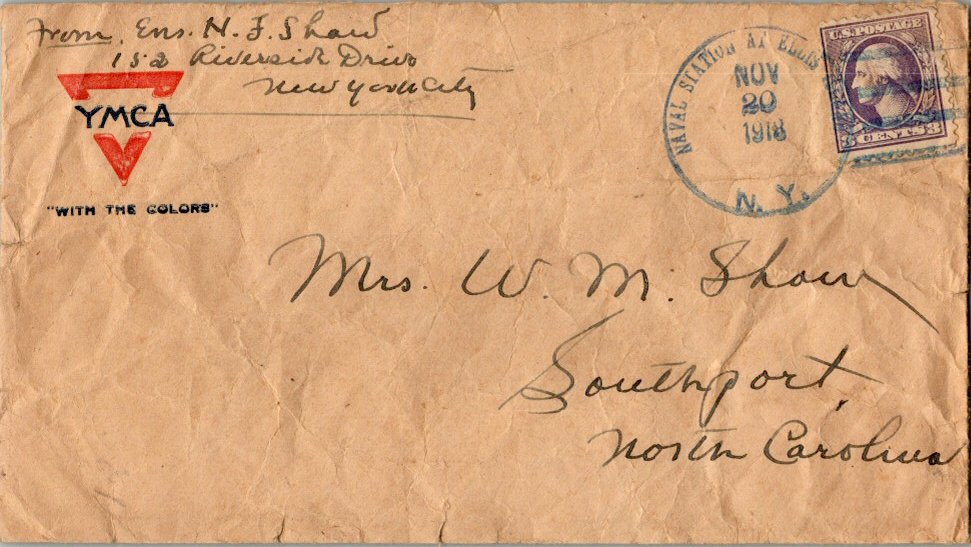 From, Ens. H. F. Shaw
152 Riverside Drive
New York City
YMCA
"WITH THE COLORS"
NAVAL STATION AT ELLIS
NOV
20
1918
N. Y.
U.S. POSTAGE
3 CENTS 3
Mrs. W. M. Shaw
Southport,
North Carolina